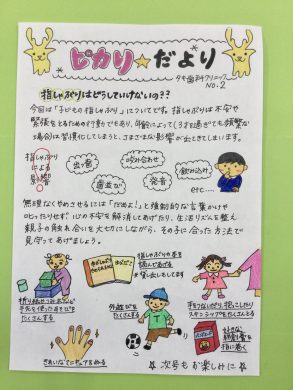 ピカリ☆だより
歯科クリニック
NO.2
指しゃぶりはどうしていけないの??
今回は「子どもの指しゃぶり」についてです。指しゃぶりは不安や
緊張をとるための行動でもあり、年齢によって(3才を過ぎても頻繁な
場合は)習慣化してしまうと、さまざまな影響が出てきてしまいます。
指しゃぶり
による
影響
出っ歯
咬み合わせ
飲み込み
歯並び
発音
etc....
無理なくやめさせるには「だめよ!」と強制的な言葉かけや
叱ったりせず、心の不安を解消してあげたり、生活リズムを整え
親子の触れ合いを大切にしながら、その子に合った方法で
見守ってあげましょう。
指しゃぶりの本を
読んであげる
★貸し出しもしてます
折り紙やつみ木など
手先を使ったあそびを
たくさんする
外遊びを
たくさんする
手をつないだり、抱っこしたり
スキンシップをたくさんとる
好きな
絆創膏を
指に巻く
きれいなマニキュアをぬる
☆次号もお楽しみに☆